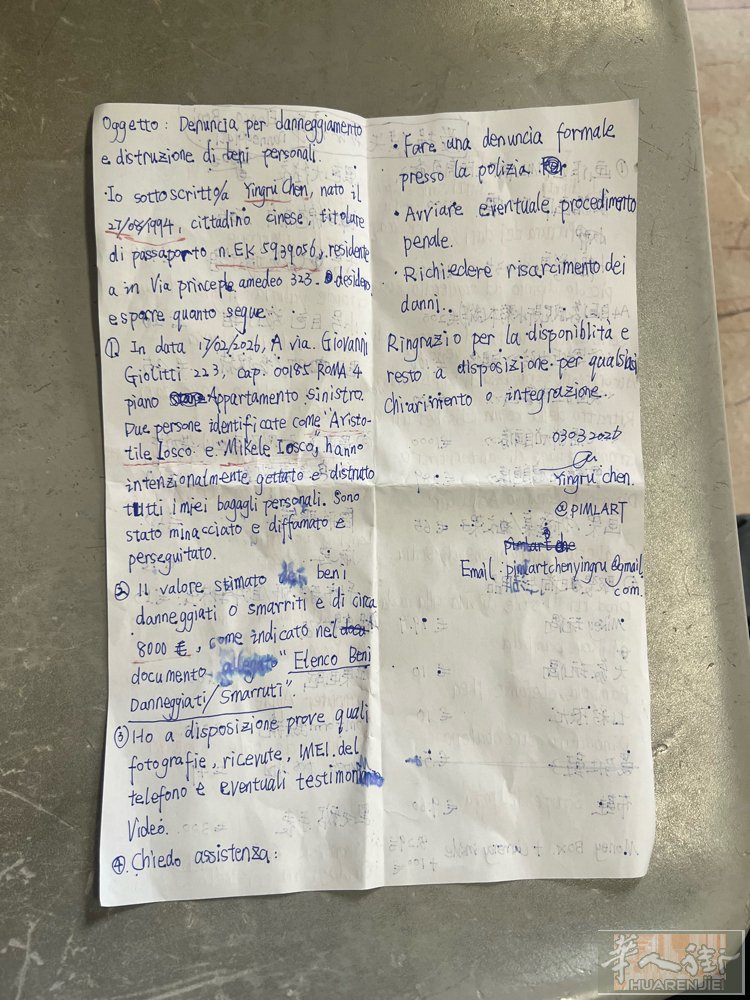 Oggetto: Denuncia per danneggiamento
e distruzione di beni personali.
·Io sottoscritto/a Yingru Chen, nato il
27/08/1994, cittadino cinese, titolare
di passaporto n. EK 5939056, residente
a in Via principle amedeo 323. desidero
esporre quanto segue
① In data 17/02/2026, A via. Giovanni
Giolitti 223, cap. 00185 ROMA 4
piano Appartamento sinistro.
Due persone identificate come "Aristo-
tile Iosco e "Mikele Iosco", hanno
intenzionalmente gettato e distruto
tutti i miei bagagli personali. Sono
stato minacciato e diffamato e
perseguitato.
② Il valore stimato dei beni
danneggiati o smarriti e di circa
8000 €, come indicato nel
documento allegato "Elenco Beni
Danneggiati/Smarruti"
③ Ho a disposizione prove quali
fotografie, ricevute, IMEI. del
telefono e eventuali testimoni
Video.
④. Chiedo assistenza:
· Fare una denuncia formale
presso la polizia
· Avviare eventuale procedimento
penale.
· Richiedere risarcimento dei
danni.
Ringrazio per la disponiblita e
resto a disposizione per qualsiasi
chiarimento o integrazione.
03032026
Yingru chen.
@PIMLART
Email: pimlartchenyingru@gmail
com.
華人街
HUARENJIE